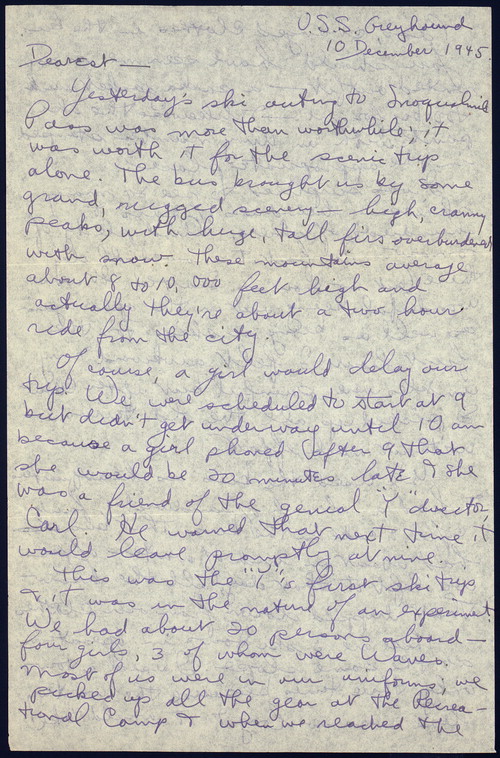 U.S.S. Greyhound
10 December 1945.
Dearest —
Yesterday's ski outing to Snoqualmie
Pass was more than worthwhile; it
was worth it for the scenic trip
alone. The bus brought us by some
grand, rugged scenery — high, cranny
peaks, with huge, tall firs overburdened
with snow. These mountains average
about 8 to 10,000 feet high and
actually they're about a two hour
ride from the city.
Of course, a girl would delay our
trip. We were scheduled to start at 9
but didn't get underway until 10 am
because a girl phoned after 9 that
she would be 20 minutes late & she
was a friend of the genial "Y" director,
Carl. He warned that next time it
would leave promptly at nine.
This was the "Y"'s first ski trip
& it was in the nature of an experiment.
We had about 20 persons aboard —
four girls, 3 of whom were Waves.
Most of us were in our uniforms; we
picked up all the gear at the Recrea-
tional Camp & when we reached the